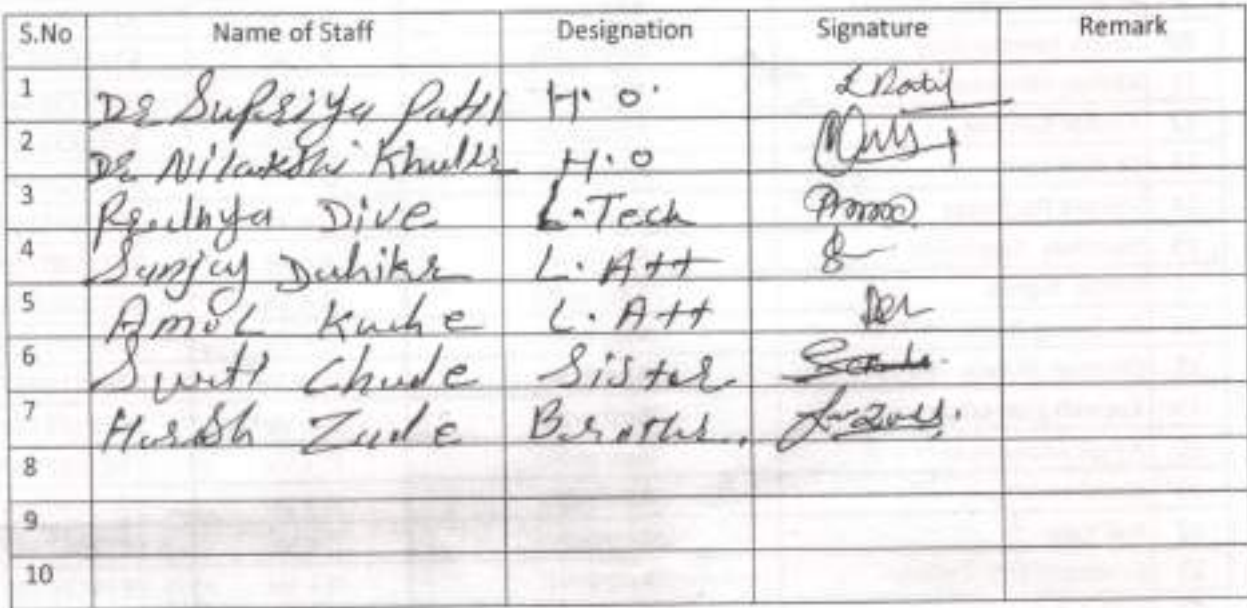 S.No Name of Staff Designation Signature Remark
1 Dr Supriya Patil H.O. S Patil
2 Dr Nilakshi H.O
3 Dive L.Tech
4 Sanjay Dahike L. Att
5 Amol Kuche L. Att
6 Swati Chude Sister
7 Harsh Zade Brother.
8
9
10